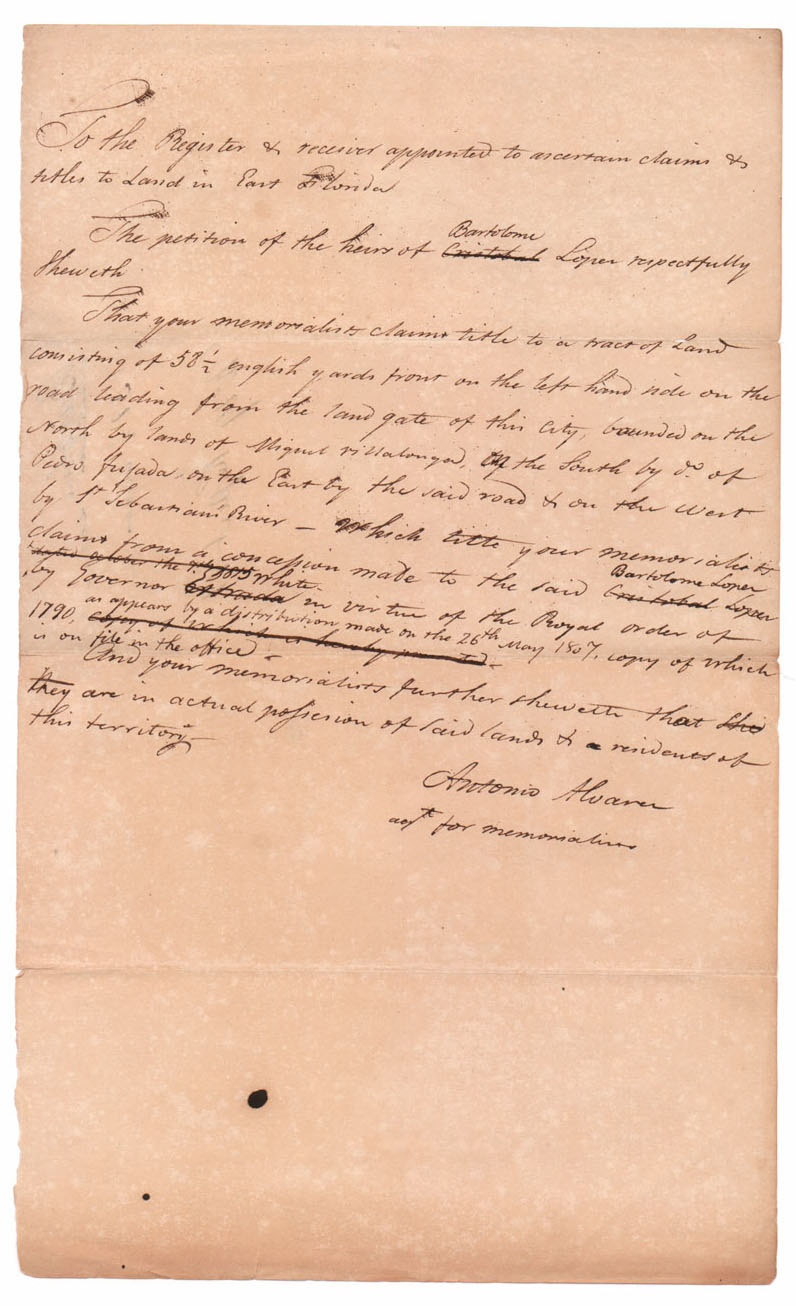 To the Register & receiver appointed to ascertain claims &
titles to Land in East Florida
Bartolome
The petition of the heirs of Cristobal Lopez respectfully
Sheweth
That your memorialists claim title to a tract of Land
consisting of 58 1/2 english yards front on the left hand side on the
road leading from the land gate of this City, bounded on the
North by lands of Miguel Villalonga, on the South by do. of
Pedro Fusada, on the East by the said road & on the West
by St. Sebastian's River — which title your memorialists
claim from a concession made to the said Bartolome Lopez
Cristobal Lopez
White
by Governor Estrada in virtue of the Royal order of
as appears by a distribution made on the 26th May 1807, copy of which
1790, copy of which is hereby
is on file in the office —
And your memorialists further sheweth that she
they are in actual possesion of said lands & residents of
this territory —
Antonio Alvarez
agt for memorialists